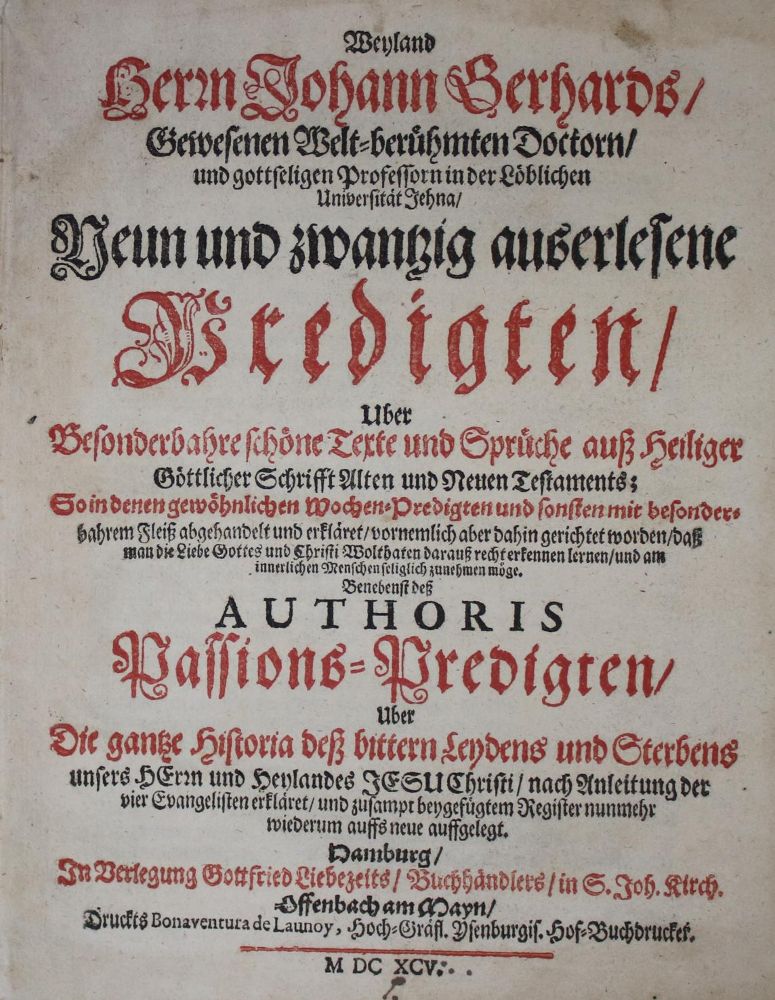 Weyland
Herrn Johann Gerhards/
Gewesenen Welt-berühmten Doctorn/
und gottseligen Professorn in der Löblichen
Universität Jehna/
Neun und zwantzig auserlesene
Predigten/
Uber
Besonderbahre schöne Texte und Sprüche auß Heiliger
Göttlicher Schrifft Alten und Neuen Testaments;
So in denen gewöhnlichen Wochen-Predigten und sonsten mit besonder-
bahrem Fleiß abgehandelt und erkläret/vornemlich aber dahin gerichtet worden/daß
man die Liebe Gottes und Christi Wolthaten darauß recht erkennen lernen/und am
innerlichen Menschen seliglich zunehmen möge.
Benebenst deß
AUTHORIS
Passions-Predigten/
Uber
Die gantze Historia deß bittern Leydens und Sterbens
unsers HErrn und Heylandes JESU Christi/nach Anleitung der
vier Evangelisten erkläret/und zusampt beygefügtem Register nunmehr
wiederum auffs neue auffgelegt.
Hamburg/
In Verlegung Gottfried Liebezeits/Buchhändlers/in S. Joh. Kirch.
Offenbach am Mayn/
Druckts Bonaventura de Launoy, Hoch-Gräfl. Ysenburgis. Hof-Buchdrucker.
M DC XCV.